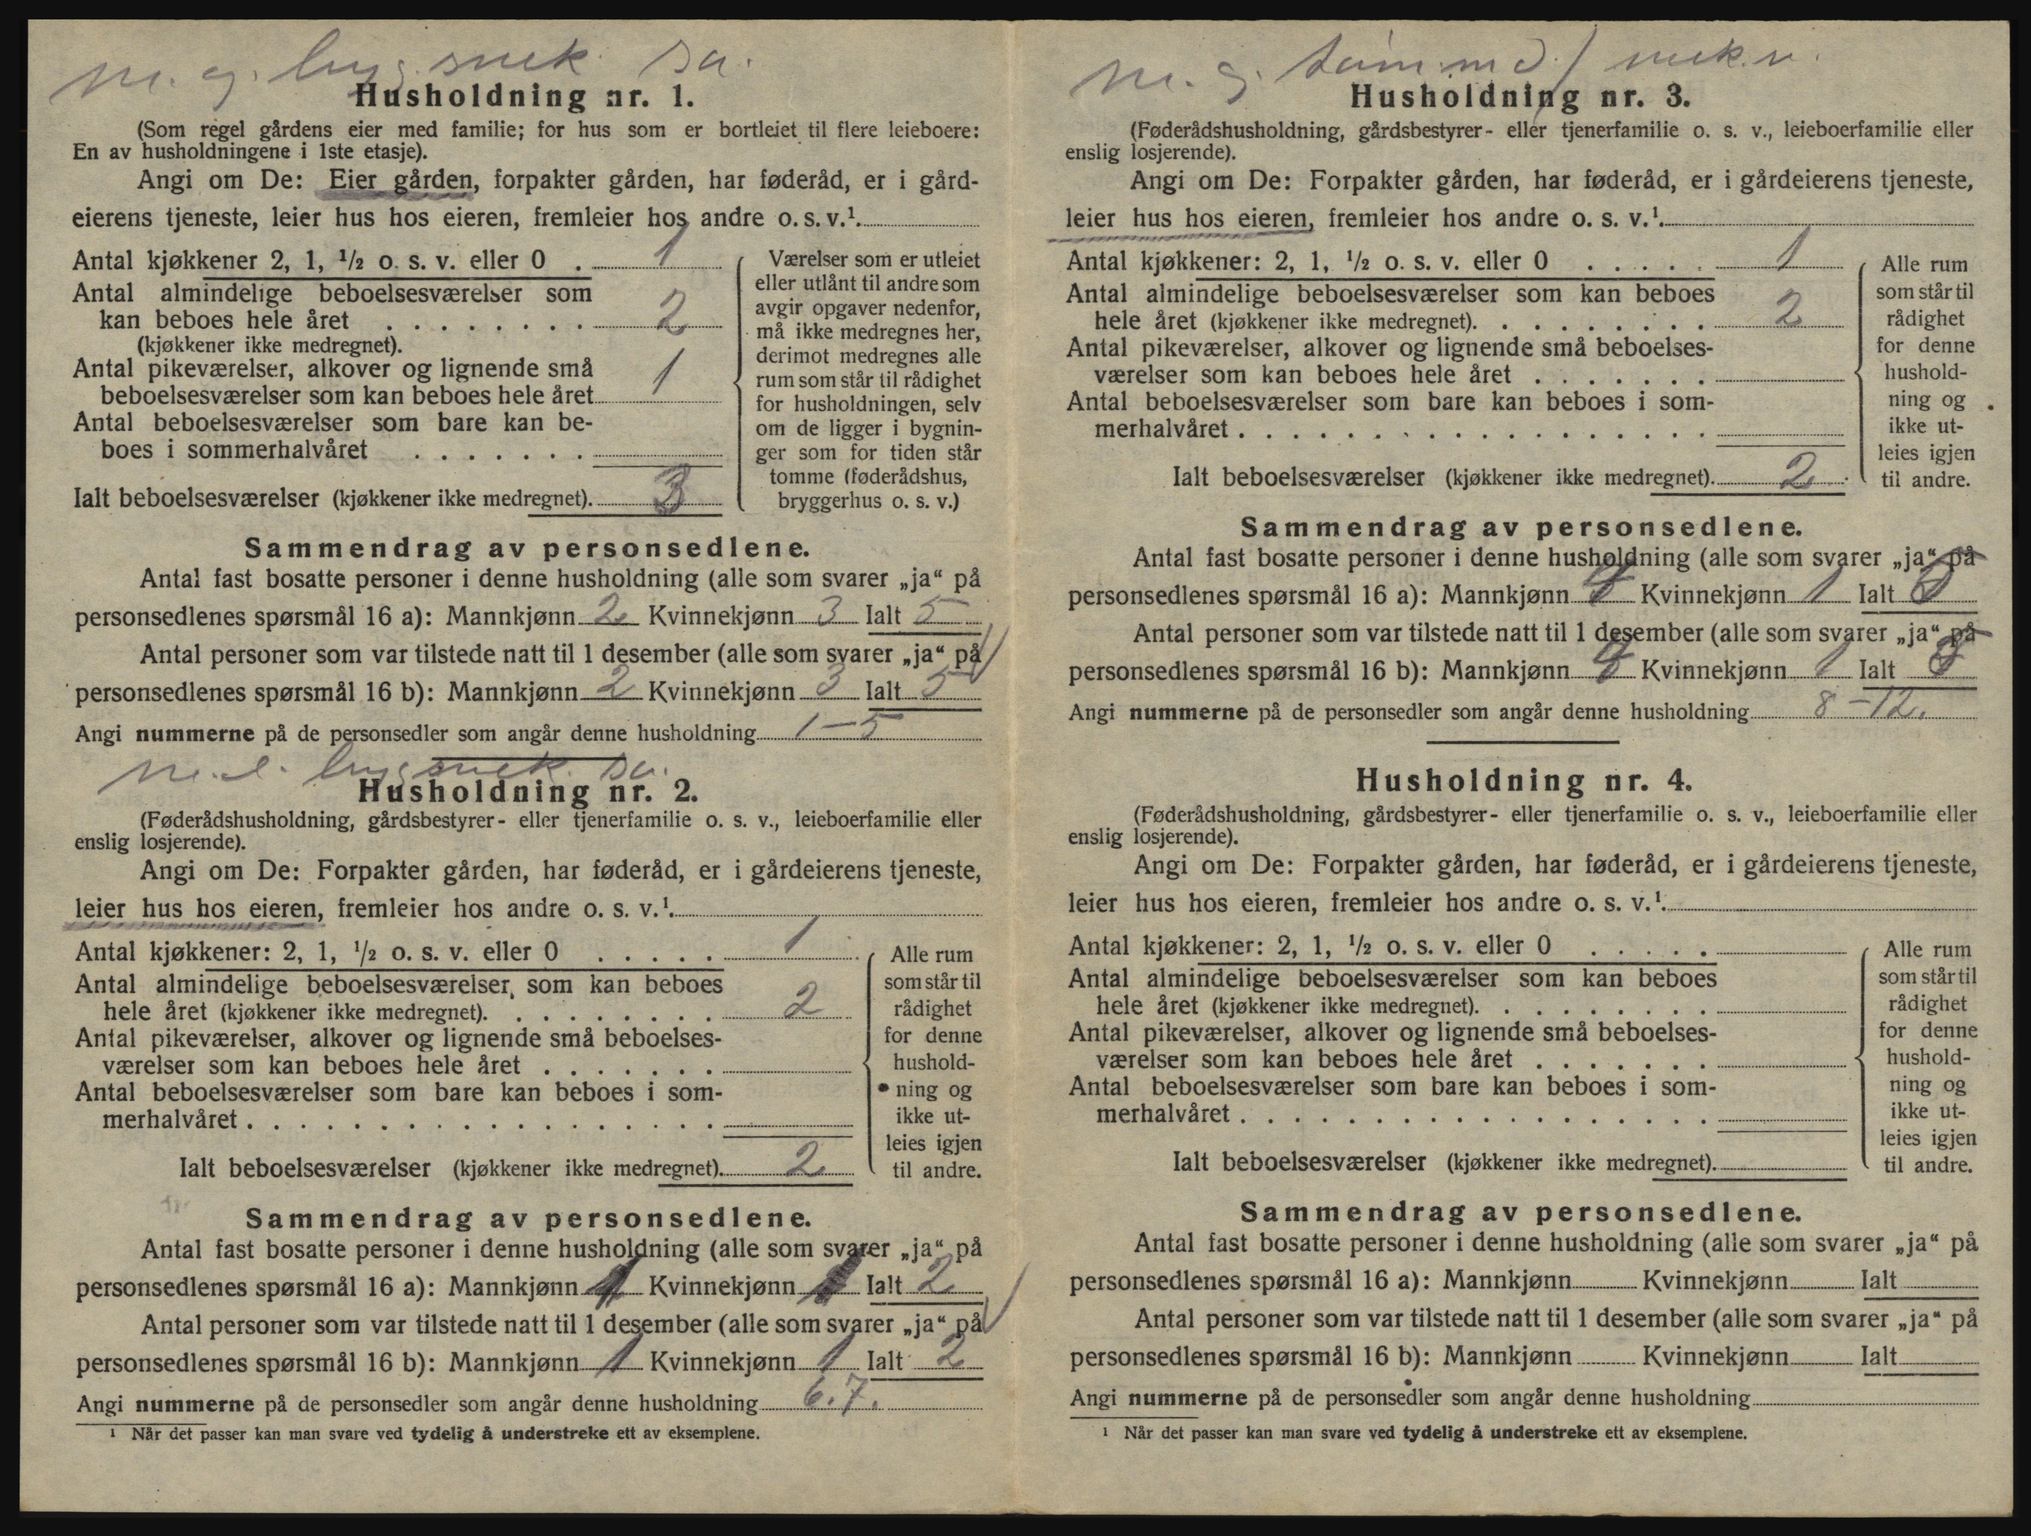 m. g. bygsnek. sa.
Husholdning nr. 1.
(Som regel gårdens eier med familie; for hus som er bortleiet til flere leieboere:
En av husholdningene i 1ste etasje).
Angi om De: Eier gården, forpakter gården, har føderåd, er i gård-
eierens tjeneste, leier hus hos eieren, fremleier hos andre o. s. v.¹.
Antal kjøkkener 2, 1, ½ o. s. v. eller 0 . 1
Antal almindelige beboelsesværelser som
kan beboes hele året . . . . . . . . 2
(kjøkkener ikke medregnet).
Antal pikeværelser, alkover og lignende små
beboelsesværelser som kan beboes hele året 1
Antal beboelsesværelser som bare kan be-
boes i sommerhalvåret . . . . . . .
Ialt beboelsesværelser (kjøkkener ikke medregnet). 3
Værelser som er utleiet
eller utlånt til andre som
avgir opgaver nedenfor,
må ikke medregnes her,
derimot medregnes alle
rum som står til rådighet
for husholdningen, selv
om de ligger i bygnin-
ger som for tiden står
tomme (føderådshus,
bryggerhus o. s. v.)
Sammendrag av personsedlene.
Antal fast bosatte personer i denne husholdning (alle som svarer „ja“ på
personsedlenes spørsmål 16 a): Mannkjønn 2 Kvinnekjønn 3 Ialt 5
Antal personer som var tilstede natt til 1 desember (alle som svarer „ja“ på
personsedlenes spørsmål 16 b): Mannkjønn 2 Kvinnekjønn 3 Ialt 5
Angi nummerne på de personsedler som angår denne husholdning 1-5
m. l. bygsnek. sa.
Husholdning nr. 2.
(Føderådshusholdning, gårdsbestyrer- eller tjenerfamilie o. s. v., leieboerfamilie eller
enslig losjerende).
Angi om De: Forpakter gården, har føderåd, er i gårdeierens tjeneste,
leier hus hos eieren, fremleier hos andre o. s. v.¹.
Antal kjøkkener: 2, 1, ½ o. s. v. eller 0 . . . . . 1
Antal almindelige beboelsesværelser som kan beboes
hele året (kjøkkener ikke medregnet). . . . . . . . . 2
Antal pikeværelser, alkover og lignende små beboelses-
værelser som kan beboes hele året . . . . . . .
Antal beboelsesværelser som bare kan beboes i som-
merhalvåret . . . . . . . . . . . . . . . . . .
Ialt beboelsesværelser (kjøkkener ikke medregnet). 2
Alle rum
som står til
rådighet
for denne
hushold-
ning og
ikke ut-
leies igjen
til andre.
Sammendrag av personsedlene.
Antal fast bosatte personer i denne husholdning (alle som svarer „ja“ på
personsedlenes spørsmål 16 a): Mannkjønn 1 Kvinnekjønn 1 Ialt 2
Antal personer som var tilstede natt til 1 desember (alle som svarer „ja“ på
personsedlenes spørsmål 16 b): Mannkjønn 1 Kvinnekjønn 1 Ialt 2
Angi nummerne på de personsedler som angår denne husholdning 6.7.
¹ Når det passer kan man svare ved tydelig å understreke ett av eksemplene.
m. g.
Husholdning nr. 3.
(Føderådshusholdning, gårdsbestyrer- eller tjenerfamilie o. s. v., leieboerfamilie eller
enslig losjerende).
Angi om De: Forpakter gården, har føderåd, er i gårdeierens tjeneste,
leier hus hos eieren, fremleier hos andre o. s. v.¹.
Antal kjøkkener: 2, 1, ½ o. s. v. eller 0 . . . . . 1
Antal almindelige beboelsesværelser som kan beboes
hele året (kjøkkener ikke medregnet). . . . . . . . . 2
Antal pikeværelser, alkover og lignende små beboelses-
værelser som kan beboes hele året . . . . . . .
Antal beboelsesværelser som bare kan beboes i som-
merhalvåret . . . . . . . . . . . . . . . . . .
Ialt beboelsesværelser (kjøkkener ikke medregnet). 2
Alle rum
som står til
rådighet
for denne
hushold-
ning og
ikke ut-
leies igjen
til andre.
Sammendrag av personsedlene.
Antal fast bosatte personer i denne husholdning (alle som svarer „ja“ på
personsedlenes spørsmål 16 a): Mannkjønn Kvinnekjønn 1 Ialt
Antal personer som var tilstede natt til 1 desember (alle som svarer „ja“ på
personsedlenes spørsmål 16 b): Mannkjønn Kvinnekjønn 1 Ialt
Angi nummerne på de personsedler som angår denne husholdning 8-12.
Husholdning nr. 4.
(Føderådshusholdning, gårdsbestyrer- eller tjenerfamilie o. s. v., leieboerfamilie eller
enslig losjerende).
Angi om De: Forpakter gården, har føderåd, er i gårdeierens tjeneste,
leier hus hos eieren, fremleier hos andre o. s. v.¹.
Antal kjøkkener: 2, 1, ½ o. s. v. eller 0 . . . . .
Antal almindelige beboelsesværelser som kan beboes
hele året (kjøkkener ikke medregnet). . . . . . . . .
Antal pikeværelser, alkover og lignende små beboelses-
værelser som kan beboes hele året . . . . . . .
Antal beboelsesværelser som bare kan beboes i som-
merhalvåret . . . . . . . . . . . . . . . . . .
Ialt beboelsesværelser (kjøkkener ikke medregnet).
Alle rum
som står til
rådighet
for denne
hushold-
ning og
ikke ut-
leies igjen
til andre.
Sammendrag av personsedlene.
Antal fast bosatte personer i denne husholdning (alle som svarer „ja“ på
personsedlenes spørsmål 16 a): Mannkjønn Kvinnekjønn Ialt
Antal personer som var tilstede natt til 1 desember (alle som svarer „ja“ på
personsedlenes spørsmål 16 b): Mannkjønn Kvinnekjønn Ialt
Angi nummerne på de personsedler som angår denne husholdning
¹ Når det passer kan man svare ved tydelig å understreke ett av eksemplene.